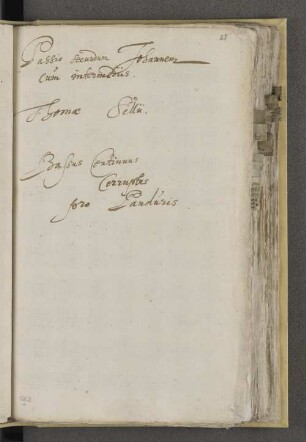 Passio secundum Johannem
Cum intermediis.
Thomæ Sellii.
Bassus Continuus
Corruptus
pro Pandûris